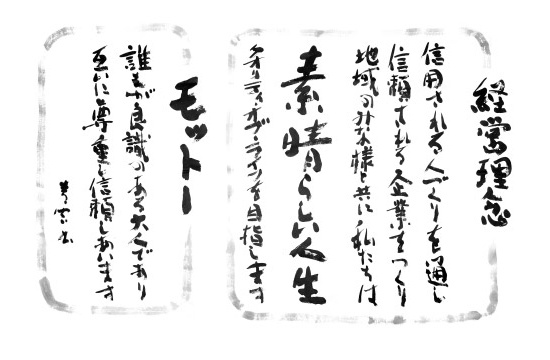 経営理念
信用される人づくりを通し
信頼される企業をつくり
地域のみな様と共に私たちは
素晴らしい人生
クオリティオブライフを目指します
モットー
誰もが良識のある大人であり
互いに尊重し信頼しあいます